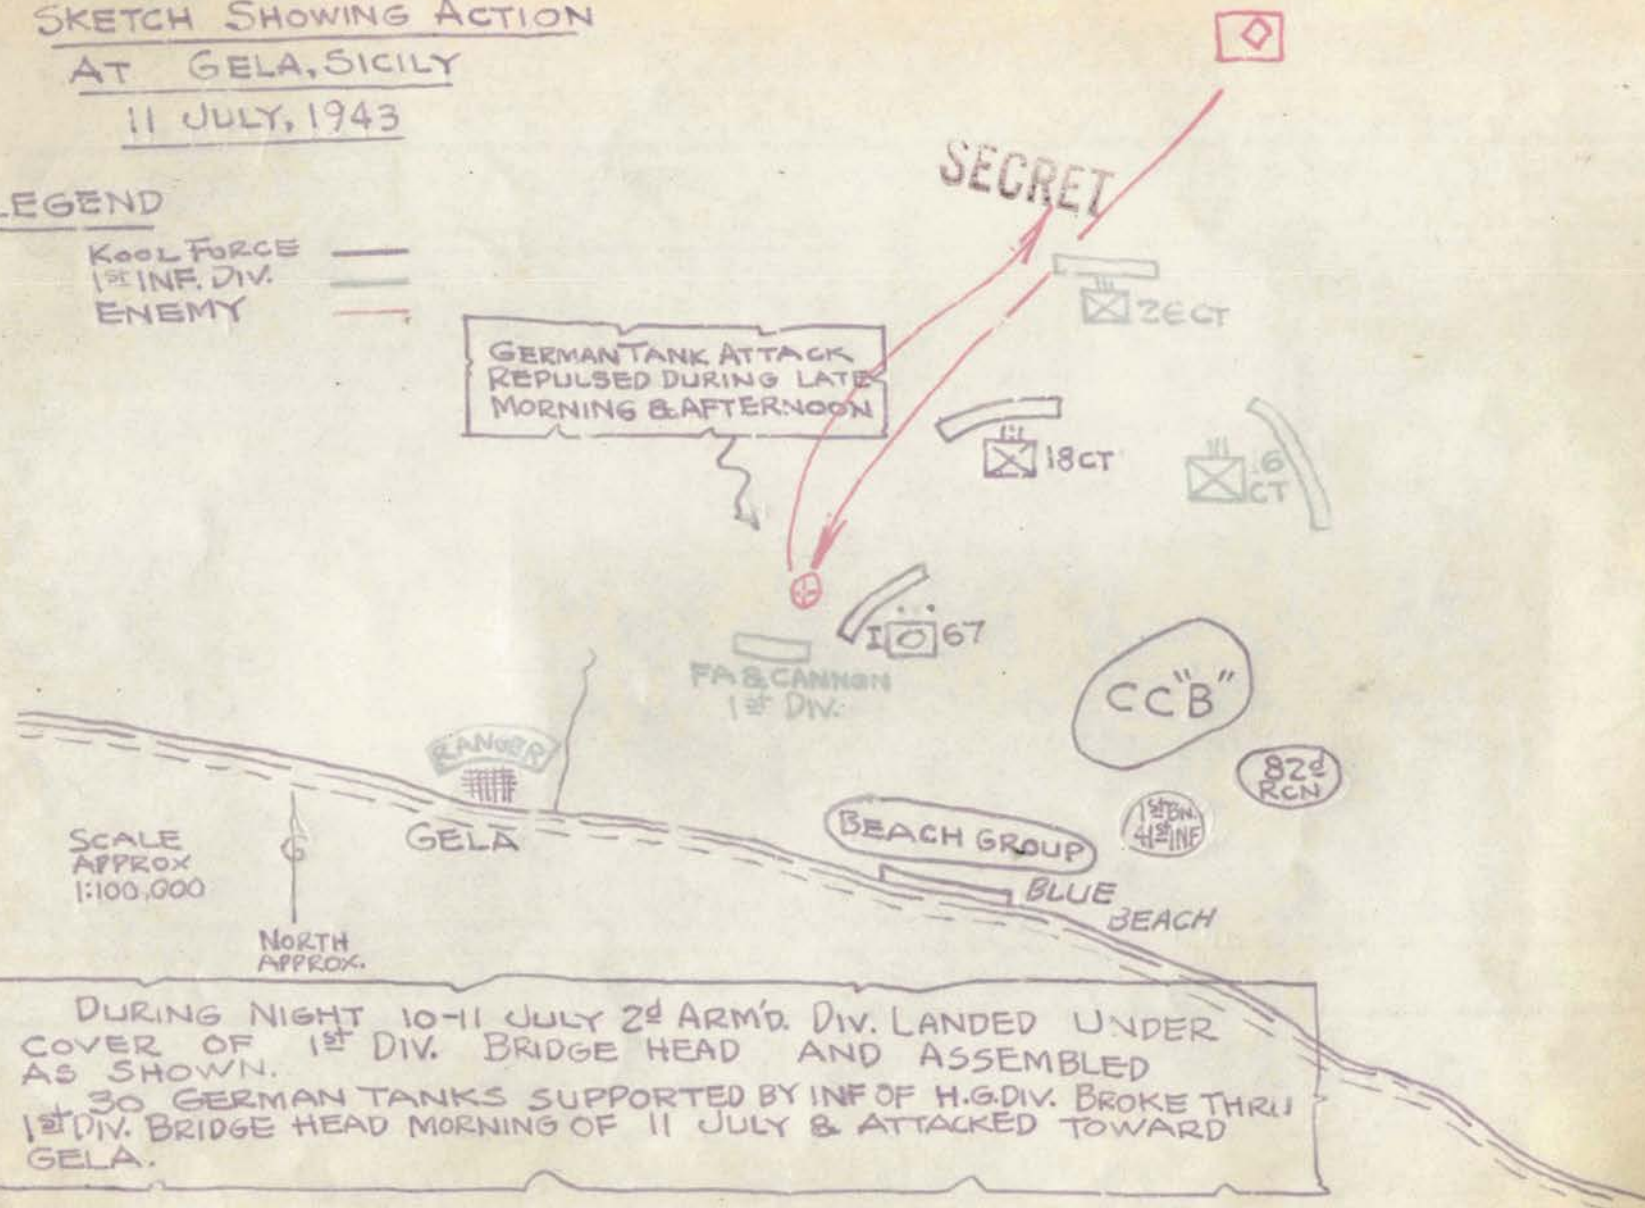 SKETCH SHOWING ACTION
AT GELA, SICILY
11 JULY, 1943
LEGEND
KOOL FORCE
1st INF. DIV.
ENEMY
SECRET
GERMAN TANK ATTACK
REPULSED DURING LATE
MORNING & AFTERNOON
26 CT
18 CT
16
CT
I 67
FA & CANNON
1st DIV.
CC "B"
RANGER
82d
RCN
1st BN
41st INF
BEACH GROUP
GELA
BLUE
BEACH
SCALE
APPROX
1:100,000
NORTH
APPROX.
DURING NIGHT 10-11 JULY 2d ARM'D. DIV. LANDED UNDER
COVER OF 1st DIV. BRIDGE HEAD AND ASSEMBLED
AS SHOWN.
30 GERMAN TANKS SUPPORTED BY INF OF H.G. DIV. BROKE THRU
1st DIV. BRIDGE HEAD MORNING OF 11 JULY & ATTACKED TOWARD
GELA.